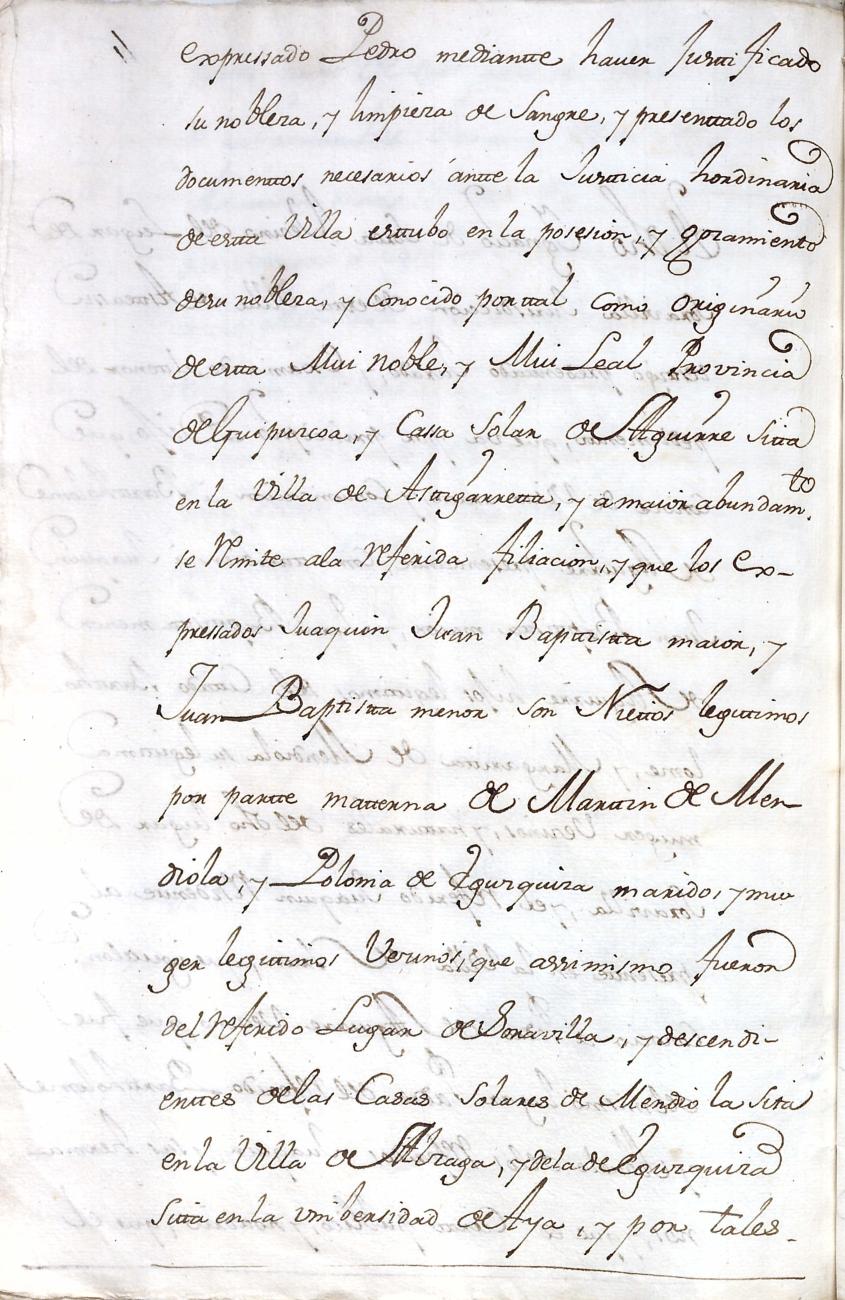 expressado Pedro mediantte haver Justtificado
su nobleza, y limpieza de Sangre, y presenttado los
documenttos necesarios antte la Justticia hordinaria
de estta Villa esttubo en la posesion, y gozamiento
de su nobleza, y Conocido por ttal como originario
de estta Mui noble, y Mui Leal Provincia
de Guipuzcoa, y Cassa Solar de Aguirre sitta
en la Villa de Asttigarretta, y a maior abundam.to
se Rmite ala Referida filiacion, y que los Ex-
pressados Juaquin Juan Bapttistta maior, y
Juan Baptistta menor son Niettos legittimos
por partte matterna de Marttin de Men-
diola, y Polonia de Egurquiza marido, y mu
ger legittimos Vezinos, que assimismo fueron
del Referido Lugar de Soravilla, y descendi-
enttes de las Casas Solares de Mendio la sita
en la Villa de Alzaga, y dela de Egurquiza
Sitta en la vnibersidad de Aya, y por tales-